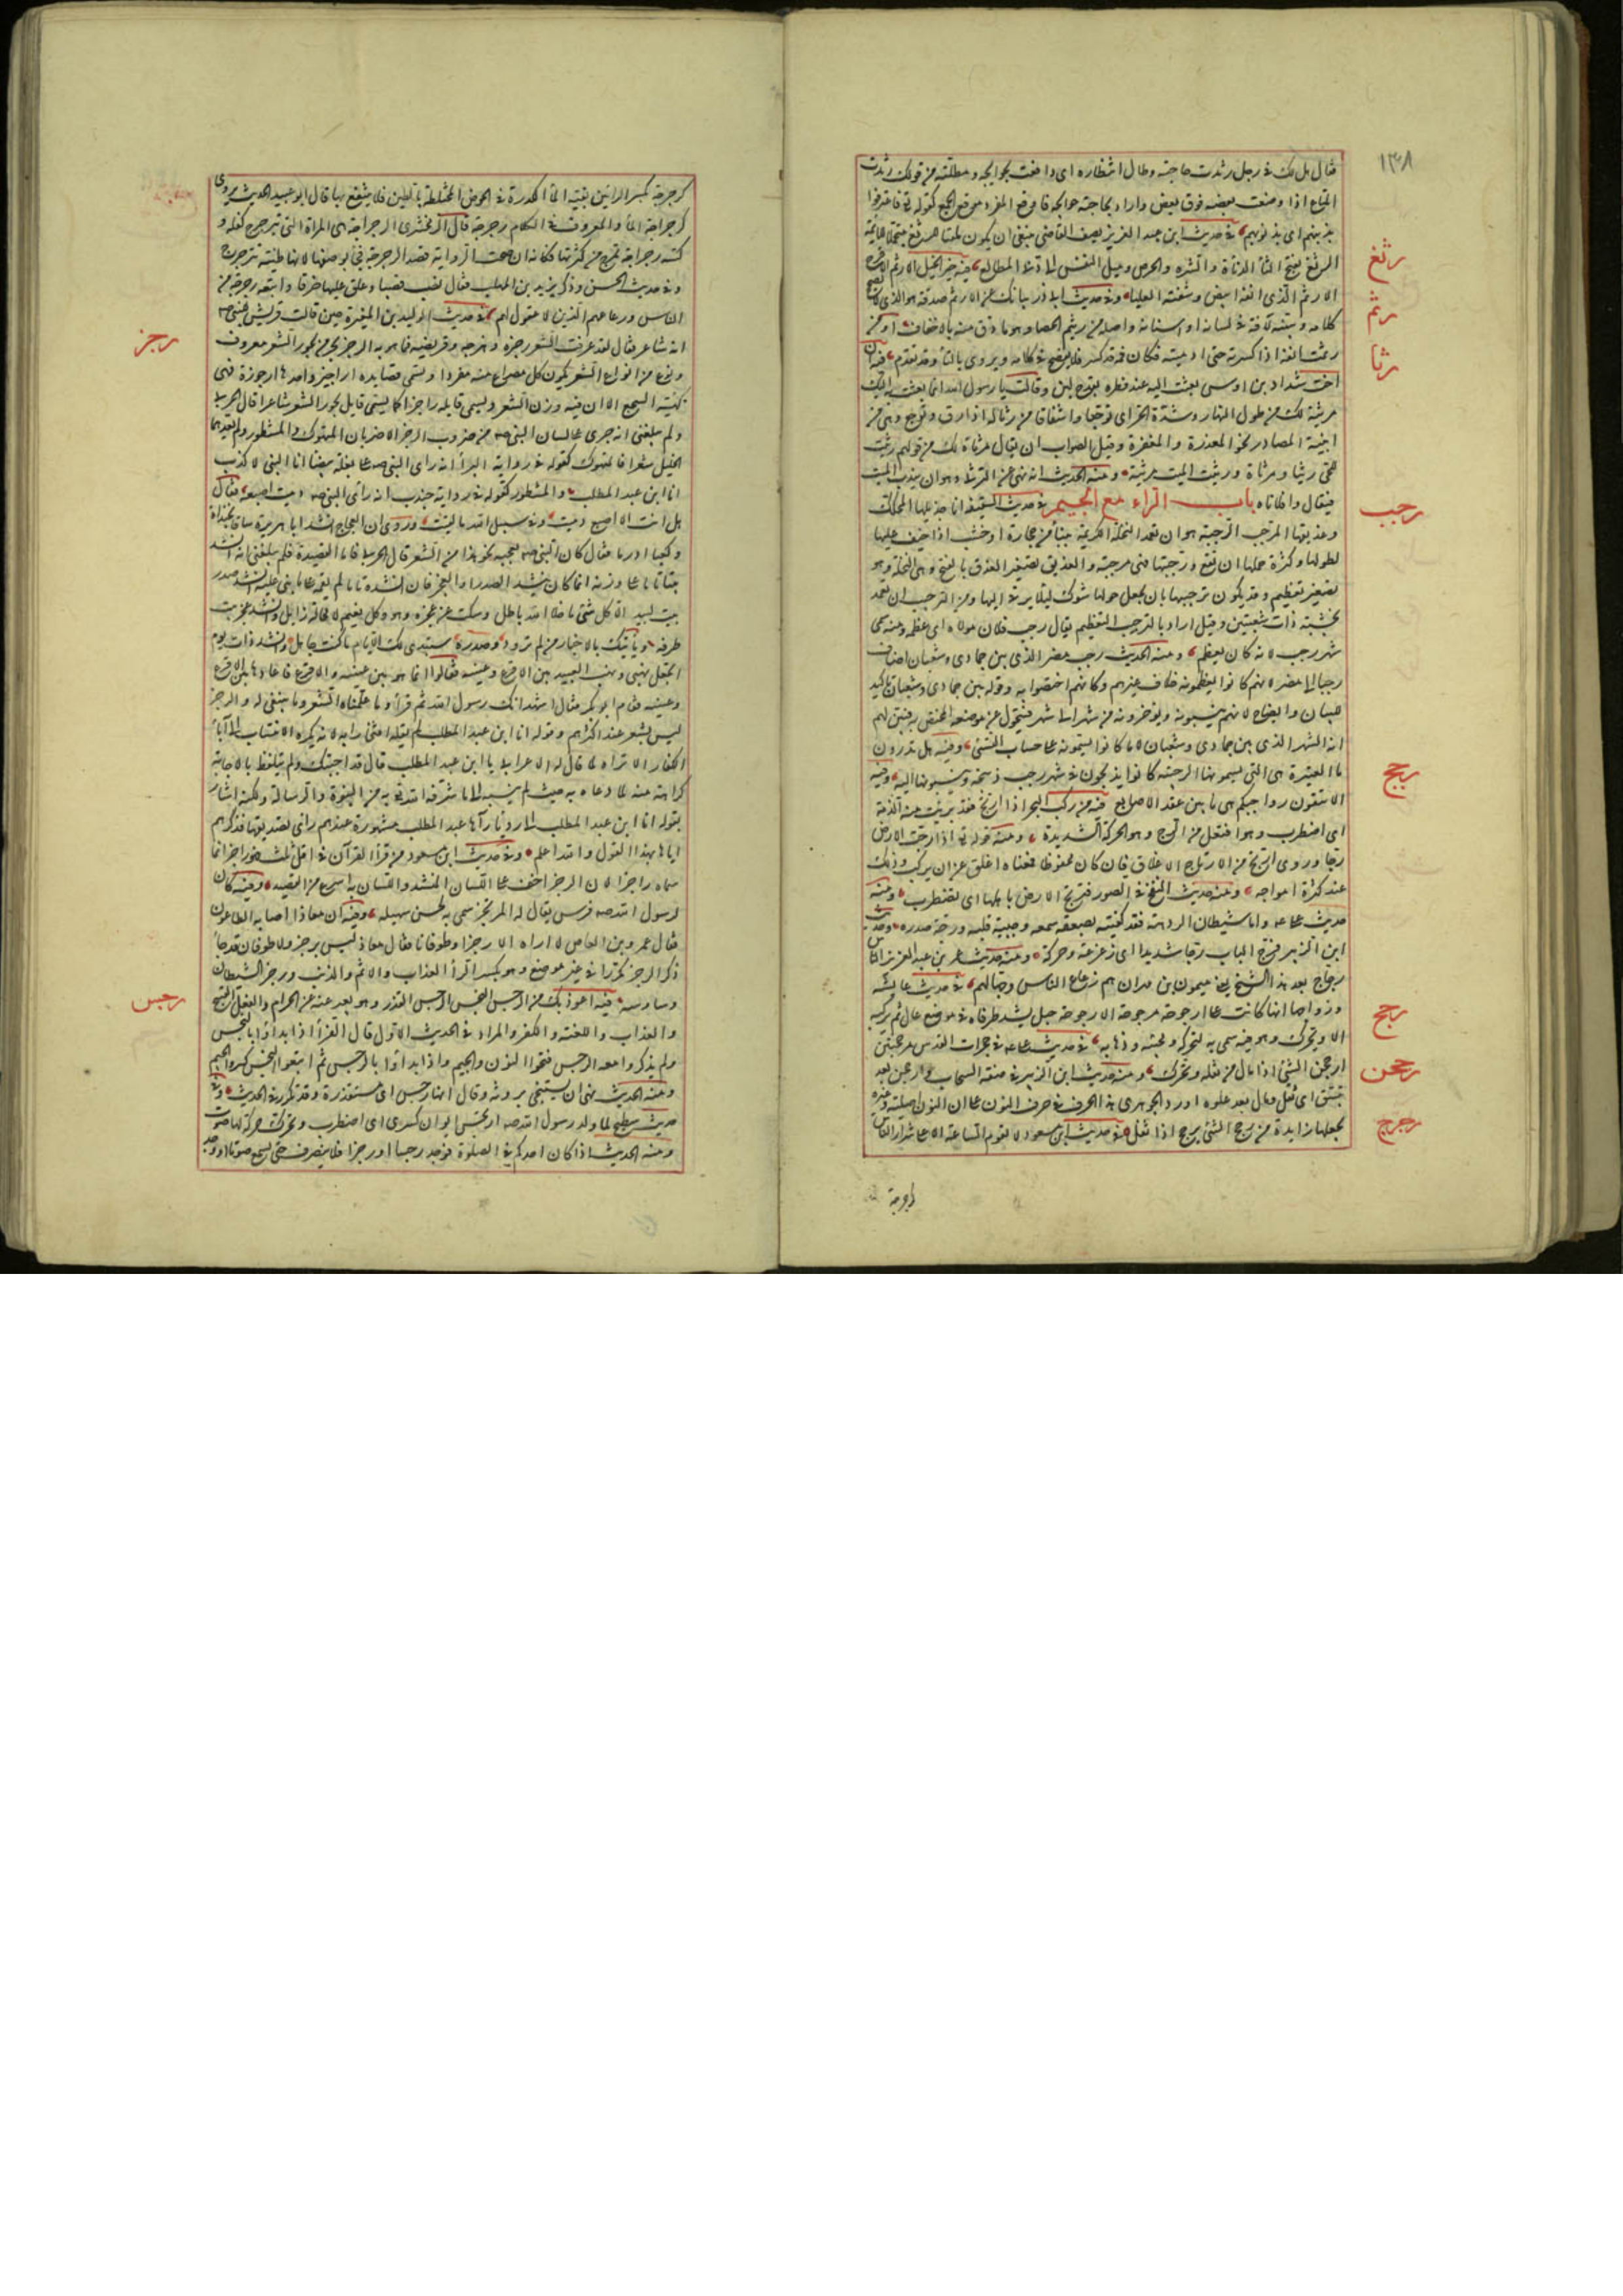 ١٣٨
فقال هل لك في رجل رثدت حاجته وطال انتظاره اى دافعت بحوائجه ومطلته من قولك رثدت
المتاع اذا وضعت بعضه فوق بعض واراد بحاجته حوائجه فاوقع المفرد موقع الجمع كقوله تع فاعترفوا
بذنبهم اى بذنوبهم في حديث ابن عبد العزيز يصف القاضى ينبغى ان يكون ملقيا للرثع متحملا للائمة
رثع
الرثع بفتح الثاء الدناءة والشره والحرص وميل النفس الى دنى المطامع فيه خير الخيل الارثم الاقرح
الارثم الذى انفه ابيض وشفته العليا وفي حديث ابى ذر بيانك عن الارثم صدقة هو الذى لا
رثم
كلامه ويبينه لآفة في لسانه او اسنانه واصله من رثيم الحصا وهو مادق منه بالاخفاف او من
رثمت انفه اذا كسرته حتى ادميته فكان فمه قد كسر فلا يفصح في كلامه ويروى بالتاء وقد تقدم فيه ان
رثا
اخت شداد بن اوس بعثت اليه عند فطره بقدح لبن وقالت يا رسول الله انما بعثت به اليك
مرثية لك من طول النهار وشدة الحر اى توجعا واشفاقا من رثى له اذا رق وتوجع وهى من
ابنية المصادر نحو المعذرة والمغفرة وقيل الصواب ان يقال مرثاة لك من قولهم رثيت
للحى رثيا ومرثاة ورثيت الميت مرثية ومنه الحديث انه نهى عن الترثى وهو ان يندب الميت
فيقال وافلاناه باب الراء مع الجيم في حديث السقيفة انا جذيلها المحكك
رجب
وعذيقها المرجب الرجبة هو ان تعمد النخلة الكريمة ببناء من حجارة او خشب اذا خيف عليها
لطولها وكثرة حملها ان تقع ورجبتها فهى مرجبة والعذيق تصغير العذق بالفتح وهى النخلة وهو
تصغير تعظيم وقد يكون ترجيبها بان يجعل حولها شوك لئلا يرقى اليها ومن الترجيب ان تعمد
بخشبة ذات شعبتين وقيل اراد بالترجيب التعظيم يقال رجب فلان مولاه اى عظمه ومنه سمى
شهر رجب لانه كان يعظم ومنه الحديث رجب مضر الذى بين جمادى وشعبان اضاف
رجبا الى مضر لانهم كانوا يعظمونه خلاف غيرهم وكانهم اختصوا به وقوله بين جمادى وشعبان تاكيد
للبيان وايضاح لانهم ينسونه ويؤخرونه من شهر الى شهر فيتحول عن موضعه المختص به فبين لهم
انه الشهر الذى بين جمادى وشعبان لا ما كانوا يسمونه على حساب النسئ وفيه هل تدرون
ما العتيرة هى التى يسمونها الرجبية كانوا يذبحون في شهر رجب ذبيحة وينسبونها اليه وفيه
رجج
الا تنقون رواجبكم هى ما بين عقد الاصابع فيه من ركب البحر اذا ارتج فقد برئت منه الذمة
اى اضطرب وهو افتعل من الرج وهو الحركة الشديدة ومنه قوله تع اذا رجت الارض
رجا وروى ارتج من الارتاج الاغلاق فان كان محفوظا فمعناه اغلق عن ان يركب وذلك
عند كثرة امواجه ومنه حديث النفخ في الصور فترتج الارض باهلها اى تضطرب ومنه
حديث على واما شيطان الردهة فقد كفيته بصعقة سمعت وجبة قلبه ورجة صدره وحديث
ابن الزبير فرج الباب رجا شديدا اى زعزعه وحركه ومنه حديث عمر بن عبد العزيز الناس
رجاج بعد هذا الشيخ يعنى ميمون بن مهران هم رعاع الناس وجهالهم في حديث عائشة
رجح
وزواجها انها كانت على ارجوحة مرجوحة الارجوحة حبل يشد طرفاه في موضع عال ثم يركبه
الانسان ويحرك وهو فيه سمى به لتحركه ومجيئه وذهابه في حديث على في حجرات القدس مرجحنين
رجحن
ارجحن الشئ اذا مال من ثقله وتحرك ومنه حديث ابن الزبير في صفة السحاب وارجحن بعد
تبسق اى ثقل ومال بعد علوه اورد الجوهرى هذا الحرف في حرف النون على ان النون اصلية وغيره
رجرج
يجعلها زايدة من رجح الشئ يرجح اذا ثقل في حديث ابن مسعود لا تقوم الساعة الا على شرار الناس
كرجرجة
كرجرجة بكسر الرائين بقية الماء الكدرة في الحوض المختلطة بالطين فلا ينتفع بها قال ابو عبيد الحديث يروى
كرجراجة الماء والمعروف في الكلام رجرجة قال الزمخشرى الرجراجة هى المراة التى يترجرج كفلها و
كتيبة رجراجة تموج من كثرتها فكانه ان صحت الرواية قصد الرجرجة فجاء بوصفها لانها طينة تترجرج
وفي حديث الحسن وذكر يزيد بن المهلب فقال نصب قصبا وعلق عليها خرقا واتبعه رجرجة من
الناس ورعاعهم الذين لا عقول لهم في حديث الوليد بن المغيرة حين قالت قريش للنبى ص
انه شاعر فقال لقد عرفت الشعر رجزه وهزجه وقريضه فما هو به الرجز بحر من بحور الشعر معروف
رجز
ونوع من انواع الشعر يكون كل مصراع منه مفردا وتسمى قصايده اراجيز واحدها ارجوزة فهى
كهيئة السجع الا ان فيه وزن الشعر ويسمى قايله راجزا كما يسمى قايل بحور الشعر شاعرا قال الحربى
ولم يبلغنى انه جرى على لسان النبى ص من ضروب الرجز الا ضربان المنهوك والمشطور ولم يعدهما
الخليل شعرا فالمنهوك كقوله في رواية البراء انه راى النبى ص على بغلة بيضا انا النبى لا كذب
انا ابن عبد المطلب والمشطور كقوله في رواية جندب انه راى النبى ص دميت اصبعه فقال
هل انت الا اصبع دميت وفي سبيل الله ما لقيت وروى ان العجاج انشد ابا هريرة ساقا بخنداة
وكعبا ادرما فقال كان النبى ص يعجبه نحو هذا من الشعر قال الحربى فاما القصيدة فلم يبلغنى انه انشد
بيتا تاما على وزنه انما كان ينشد الصدر او العجز فان انشده تاما لم يقمه على ما بنى عليه انشد صدر
بيت لبيد الا كل شئ ما خلا الله باطل وسكت عن عجزه وهو وكل نعيم لا محالة زايل وانشد عجز بيت
طرفة وياتيك بالاخبار من لم تزود وصدره ستبدى لك الايام ما كنت جاهلا وانشد ذات يوم
اتجعل نهبى ونهب العبيد بين الاقرع وعيينة فقالوا انما هو بين عيينة والاقرع فاعادها بين الاقرع
وعيينة فقام ابو بكر فقال اشهد انك رسول الله ثم قرأ وما علمناه الشعر وما ينبغى له والرجز
ليس بشعر عند اكثرهم وقوله انا ابن عبد المطلب لم يقله افتخارا به لانه كان يكره الانتساب الى الآباء
الكفار الا تراه لما قال له الاعرابى يا ابن عبد المطلب قال قد اجبتك ولم يتلفظ بالاجابة
كراهة منه لما دعاه به حيث لم ينسبه الى ما شرفه الله تع به من النبوة والرسالة ولكنه اشار
بقوله انا ابن عبد المطلب الى رؤيا رآها عبد المطلب مشهورة عندهم راى تصديقها فذكرهم
اياها بهذا القول والله اعلم وفي حديث ابن مسعود من قرأ القرآن في اقل من ثلث فهو راجز انما
سماه راجزا لان الرجز اخف على اللسان المنشد واللسان به اسرع من القصيد وفيه كان
لرسول الله ص فرس يقال له المرتجز سمى به لحسن صهيله وفيه ان معاذا اصابه الطاعون
فقال عمرو بن العاص لا اراه الا رجزا وطوفانا فقال معاذ ليس برجز ولا طوفان قد جاء
ذكر الرجز مكررا في غير موضع وهو بكسر الراء العذاب والاثم والذنب ورجز الشيطان
وساوسه فيه اعوذ بك من الرجس النجس الرجس القذر وقد يعبر به عن الحرام والفعل القبيح
رجس
والعذاب واللعنة والكفر والمراد في الحديث الاول قال الفراء اذا بداوا بالنجس
ولم يذكروا معه الرجس فتحوا النون والجيم واذا بداوا بالرجس ثم اتبعوا النجس كسروا الجيم
ومنه الحديث نهى ان يستنجى بروثة وقال انها رجس اى مستقذرة وقد تكرر في الحديث وفي
حديث سطيح لما ولد رسول الله ص ارتجس ايوان كسرى اى اضطرب وتحرك حركة لها صوت
ومنه الحديث اذا كان احدكم في الصلوة فوجد رجسا او رجزا فلا ينصرف حتى يسمع صوتا او يجد